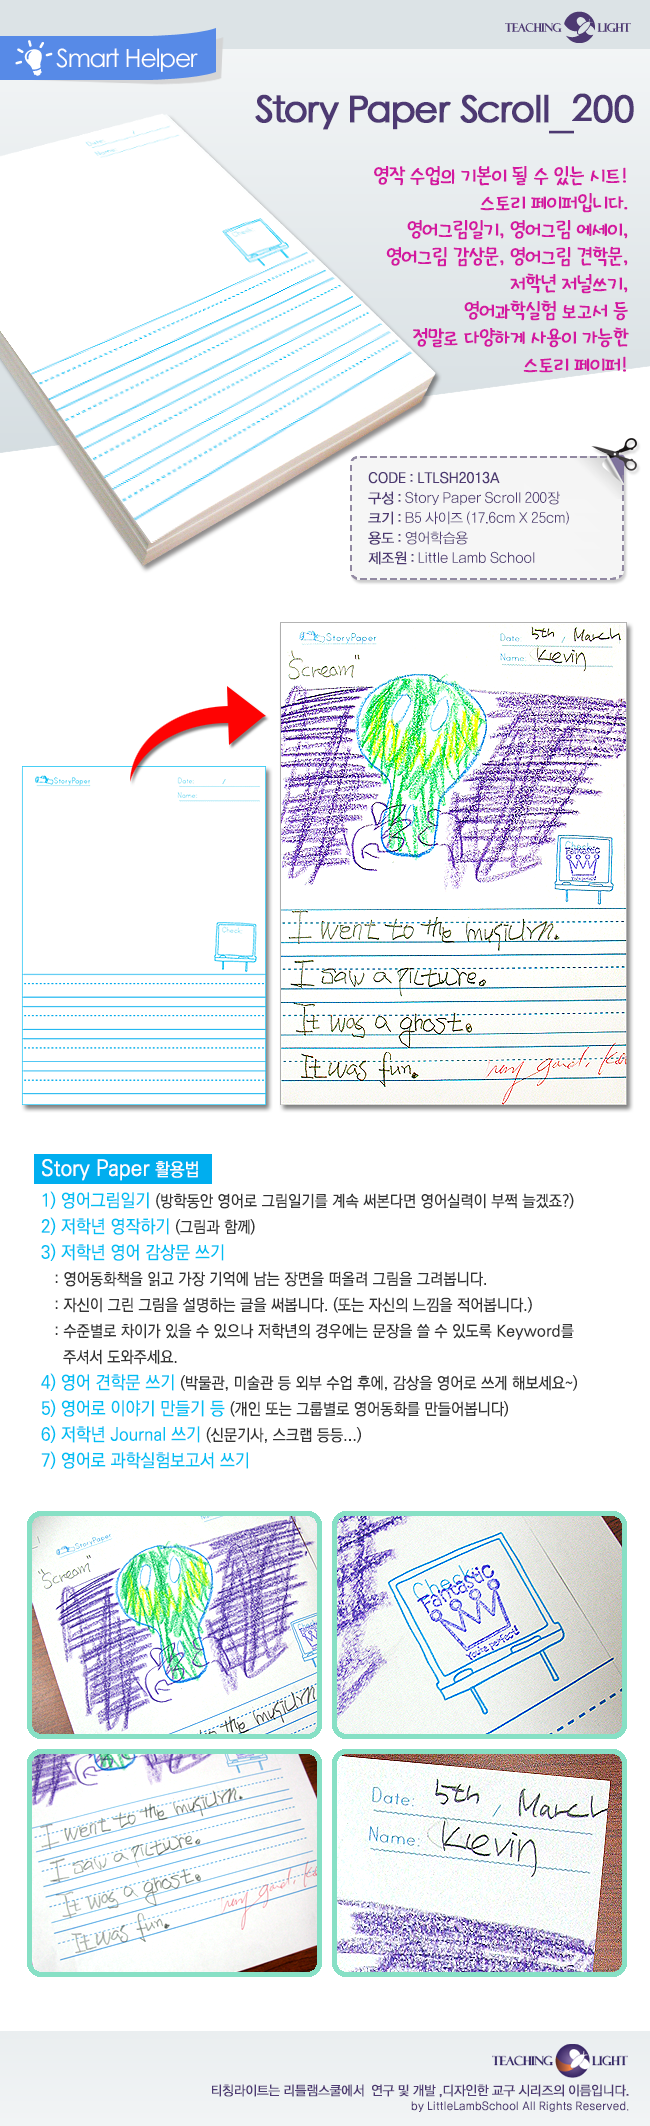 TEACHING LIGHT
Smart Helper
Story Paper Scroll_200
영작 수업의 기본이 될 수 있는 시트!
스토리 페이퍼입니다.
영어그림일기, 영어그림 에세이,
영어그림 감상문, 영어그림 견학문,
저학년 저널쓰기,
영어과학실험 보고서 등
정말로 다양하게 사용이 가능한
스토리 페이퍼!
Check
CODE : LTLSH2013A
구성 : Story Paper Scroll 200장
크기 : B5 사이즈 (17.6cm X 25cm)
용도 : 영어학습용
제조원 : Little Lamb School
StoryPaper
Date: /
Name:
Check
StoryPaper
Date: 5th, March
Name: Kevin
"Scream"
Check
Fantastic
I went to the musiurn.
I saw a picture.
It was a ghost.
It was fun.
very good,
Story Paper 활용법
1) 영어그림일기 (방학동안 영어로 그림일기를 계속 써본다면 영어실력이 부쩍 늘겠죠?)
2) 저학년 영작하기 (그림과 함께)
3) 저학년 영어 감상문 쓰기
: 영어동화책을 읽고 가장 기억에 남는 장면을 떠올려 그림을 그려봅니다.
: 자신이 그린 그림을 설명하는 글을 써봅니다. (또는 자신의 느낌을 적어봅니다.)
: 수준별로 차이가 있을 수 있으나 저학년의 경우에는 문장을 쓸 수 있도록 Keyword를
주셔서 도와주세요.
4) 영어 견학문 쓰기 (박물관, 미술관 등 외부 수업 후에, 감상을 영어로 쓰게 해보세요~)
5) 영어로 이야기 만들기 등 (개인 또는 그룹별로 영어동화를 만들어봅니다)
6) 저학년 Journal 쓰기 (신문기사, 스크랩 등등...)
7) 영어로 과학실험보고서 쓰기
StoryPaper
"Scream"
to the musiurn.
Check
Fantastic
You're perfect!
I went to the musiurn.
I saw a picture.
It was a ghost.
It was fun.
very good,
Date: 5th, March
Name: Kevin
TEACHING LIGHT
티칭라이트는 리틀램스쿨에서 연구 및 개발 ,디자인한 교구 시리즈의 이름입니다.
by LittleLambSchool All Rights Reserved.